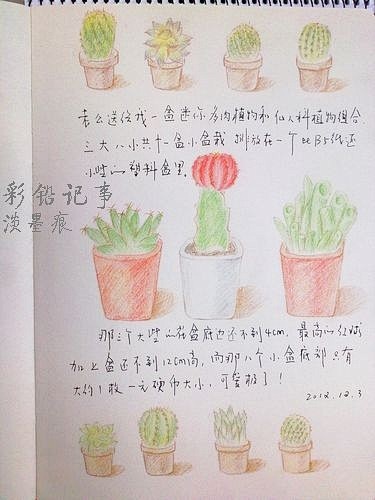 老公送给我一盒迷你多肉植物和仙人科植物组合.
三大八小共十一盆小盆栽 排放在一个比B5纸还
小些的塑料盒里.
彩铅记事
淡墨痕
那三个大些的花盆底边还不到4cm,最高的红球
加上盆还不到12cm高,而那八个小盆底部只有
大约1枚一元硬币大小,可爱极了!
2012.12.3